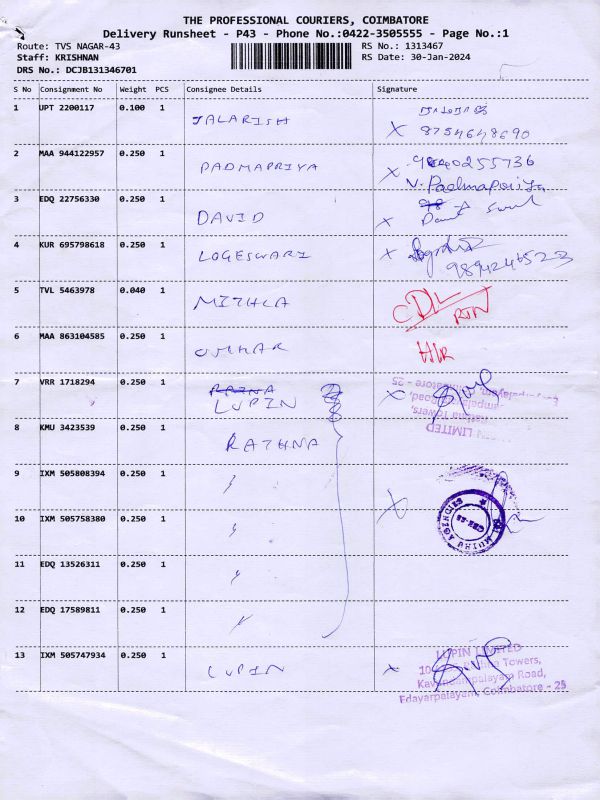 THE PROFESSIONAL COURIERS, COIMBATORE
Delivery Runsheet - P43 - Phone No.:0422-3505555 - Page No.:1
Route: TVS NAGAR-43 RS No.: 1313467
Staff: KRISHNAN RS Date: 30-Jan-2024
DRS No.: DCJB131346701
S No Consignment No Weight PCS Consignee Details Signature
1 UPT 2200117 0.100 1 JALARISH X 8754648690
2 MAA 944122957 0.250 1 PADMAPRIYA X 9840255736
V. Padmapriya
3 EDQ 22756330 0.250 1 DAVID X
4 KUR 695798618 0.250 1 LOGESWARI X 9894246523
5 TVL 5463978 0.040 1 MITHLA CDL RTN
6 MAA 863104585 0.250 1 H/R
7 VRR 1718294 0.250 1 LUPIN X
LIMITED
8 KMU 3423539 0.250 1 RATHNA
9 IXM 505808394 0.250 1 〃
10 IXM 505758380 0.250 1 〃 X
11 EDQ 13526311 0.250 1 〃
12 EDQ 17589811 0.250 1 〃
13 IXM 505747934 0.250 1 LUPIN X
LUPIN LIMITED
Towers,
Road,
Edayarpalayam, Coimbatore - 25